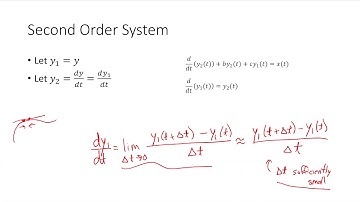 Second Order System
• Let y₁ = y
• Let y₂ = dy/dt = dy₁/dt
d/dt (y₂(t)) + by₂(t) + cy₁(t) = x(t)
d/dt (y₁(t)) = y₂(t)
dy₁/dt = lim Δt→0 (y₁(t+Δt) − y₁(t))/Δt ≈ (y₁(t+Δt) − y₁(t))/Δt
↑ Δt sufficiently
small